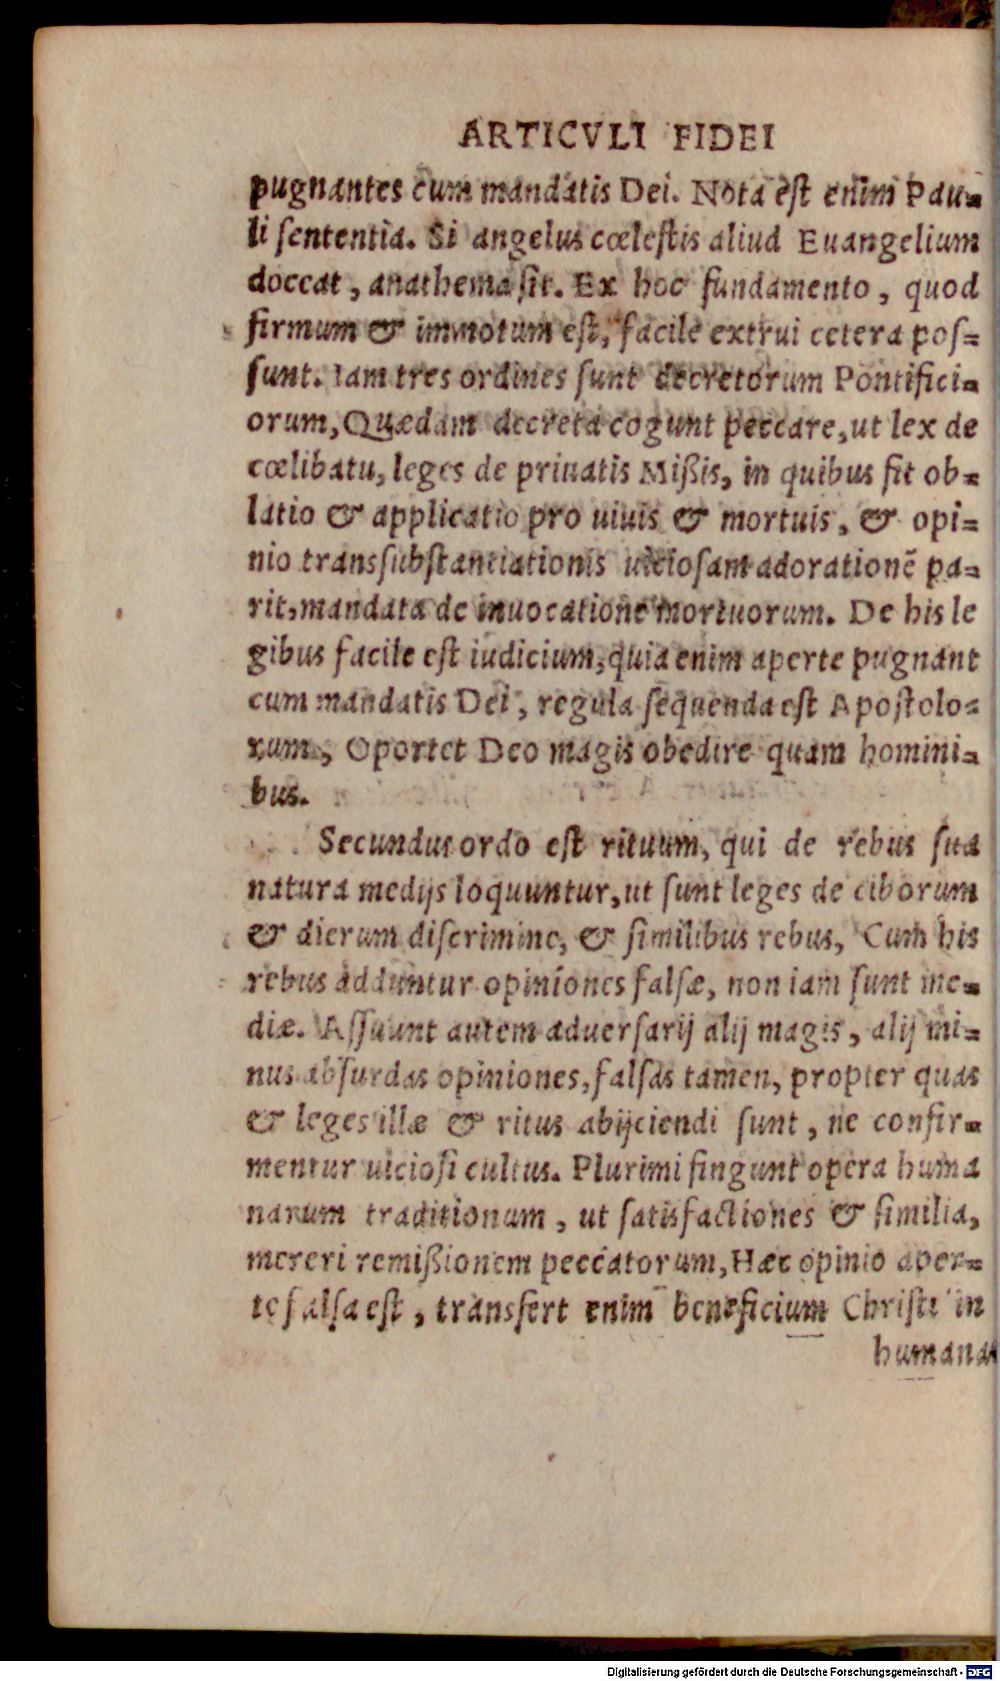 ARTICVLI FIDEI
pugnantes cum mandatis Dei. Nota est enim Pau=
li sententia. Si angelus cœlestis aliud Euangelium
doceat, anathema sit. Ex hoc fundamento, quod
firmum & immotum est, facile extrui cetera pos=
sunt. Iam tres ordines sunt decretorum Pontifici=
orum, Quædam decreta cogunt peccare, ut lex de
cœlibatu, leges de priuatis Mißis, in quibus fit ob=
latio & applicatio pro uiuis & mortuis, & opi=
nio transsubstantiationis uiciosam adorationē pa=
rit, mandata de inuocatione mortuorum. De his le
gibus facile est iudicium, quia enim aperte pugnant
cum mandatis Dei, regula sequenda est Apostolo=
rum, Oportet Deo magis obedire quam homini=
bus.
Secundus ordo est rituum, qui de rebus sua
natura medijs loquuntur, ut sunt leges de ciborum
& dierum discrimine, & similibus rebus, Cum his
rebus adduntur opiniones falsæ, non iam sunt me=
diæ. Assuunt autem aduersarij alij magis, alij mi=
nus absurdas opiniones, falsas tamen, propter quas
& leges illæ & ritus abijciendi sunt, ne confir=
mentur uiciosi cultus. Plurimi fingunt opera huma
narum traditionum, ut satisfactiones & similia,
mereri remißionem peccatorum, Hæc opinio aper=
te falsa est, transfert enim beneficium Christi in
humanas
Digitalisierung gefördert durch die Deutsche Forschungsgemeinschaft - DFG